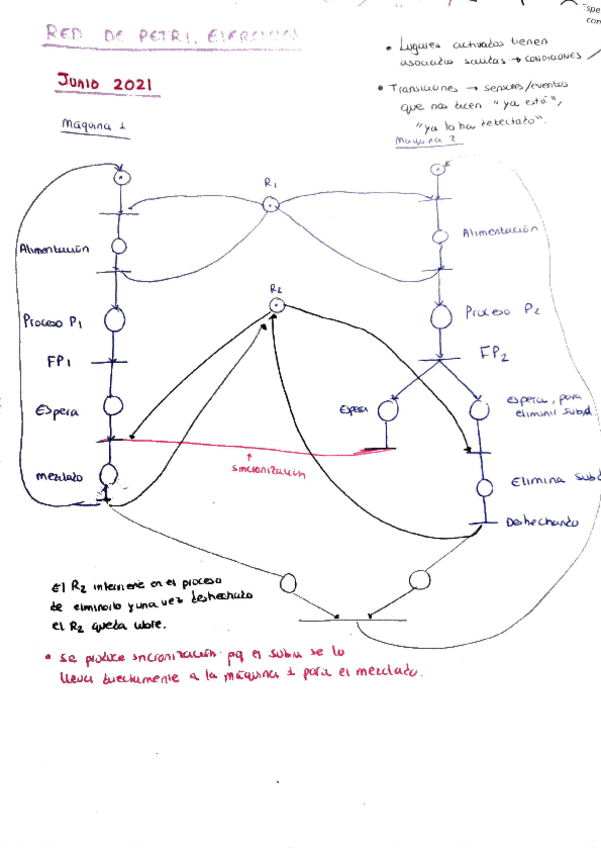 RED DE PETRI. EJERCICIOS
Espe
con
• Lugares activados tienen
asociado salidas → CONDICIONES
JUNIO 2021
• Transiciones → sensores/eventos
que nos dicen "ya está",
"ya lo ha detectado".
Máquina 1
Máquina 2
R1
Alimentación
Alimentación
R2
Proceso P1
Proceso P2
FP1
FP2
Espera
Espera
espera, para
eliminir subd.
sincronización
mezclado
Elimina subd
Deshechando
El R2 interviene en el proceso
de eliminarlo y una vez deshechado
el R2 queda libre.
• se produce sincronización pq el subd se lo
lleva directamente a la máquina 1 para el mezclado.